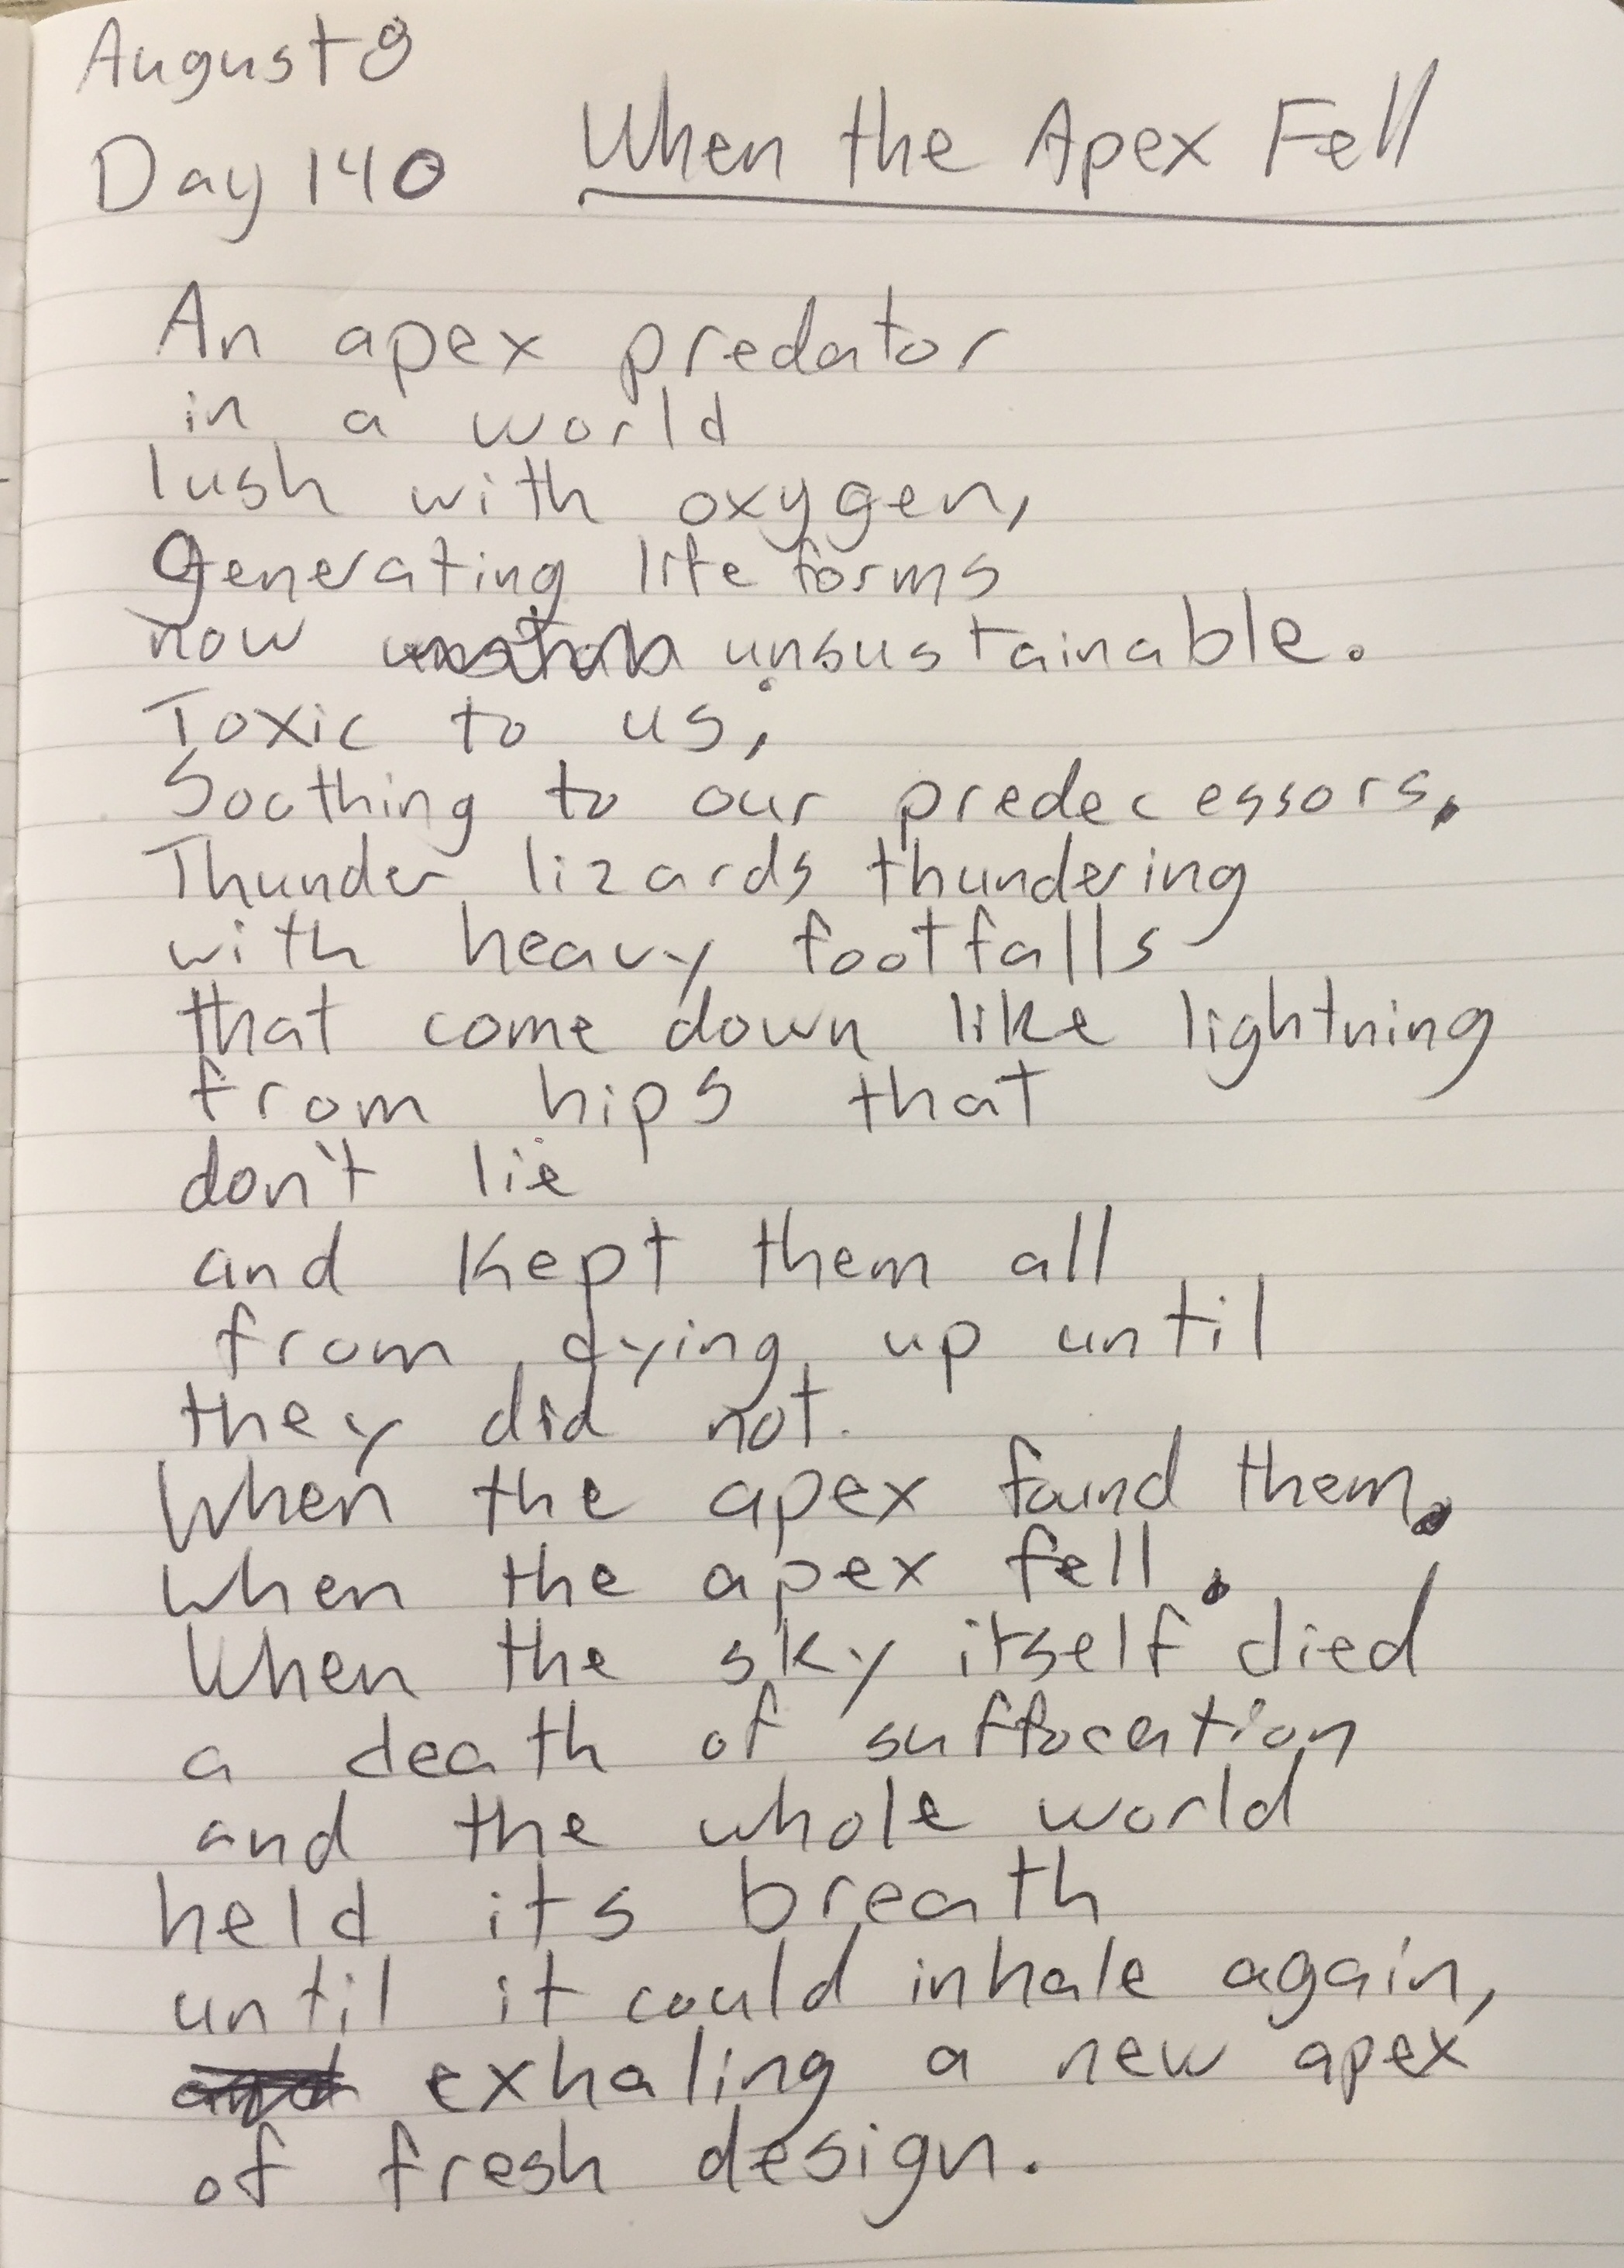 August 8
Day 140 When the Apex Fell
An apex predator
in a world
lush with oxygen,
Generating life forms
now unsustainable.
Toxic to us;
Soothing to our predecessors.
Thunder lizards thundering
with heavy footfalls
that come down like lightning
from hips that
don't lie
and kept them all
from dying up until
they did not.
When the apex found them.
When the apex fell.
When the sky itself died
a death of suffocation
and the whole world
held its breath
until it could inhale again,
exhaling a new apex
of fresh design.